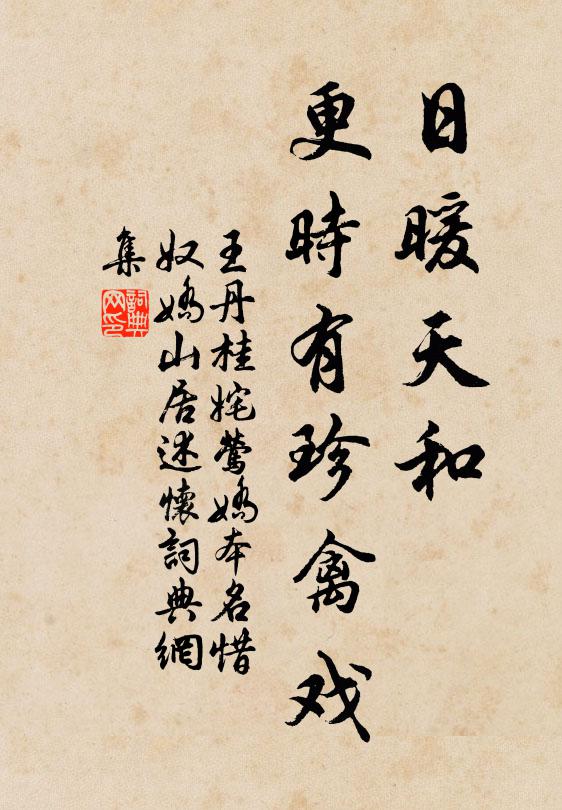 日暖天和
更時有珍禽戏
王丹桂姹鶯嬌本名惜
奴嬌山居述懷詞典網
集
詞典
网印